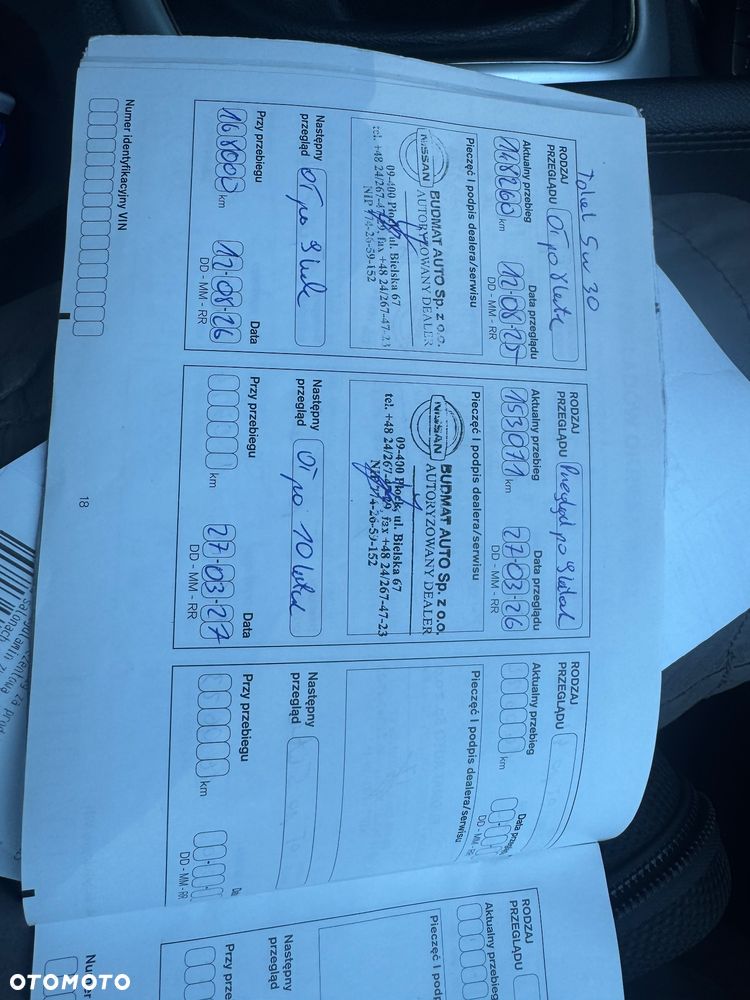 Total 5w30
RODZAJ PRZEGLĄDU
OT po 8 latach
Aktualny przebieg
148260 km
Data przeglądu
12-08-25
DD - MM - RR
Pieczęć i podpis dealera/serwisu
NISSAN
BUDMAT AUTO Sp. z o.o.
AUTORYZOWANY DEALER
09-400 Płock, ul. Bielska 67
fax +48 24/267-47-23
NIP 774-26-59-152
Następny przegląd
OT po 9 lat
Przy przebiegu
km
Data
12-08-26
DD - MM - RR
RODZAJ PRZEGLĄDU
Przegląd po 9 latach
Aktualny przebieg
153071 km
Data przeglądu
27-03-26
DD - MM - RR
Pieczęć i podpis dealera/serwisu
NISSAN
BUDMAT AUTO Sp. z o.o.
AUTORYZOWANY DEALER
09-400 Płock, ul. Bielska 67
fax +48 24/267-47-23
NIP 774-26-59-152
Następny przegląd
OT po 10 latach
Przy przebiegu
km
Data
27-03-27
DD - MM - RR
RODZAJ PRZEGLĄDU
Aktualny przebieg
km
Data
DD - MM - RR
Pieczęć i podpis dealera/serwisu
Następny przegląd
Przy przebiegu
km
DD - MM - RR
Numer identyfikacyjny VIN
18
RODZAJ PRZEGLĄDU
Aktualny przebieg
Pieczęć i pod
Następny przegląd
Przy prze
Numer
OTOMOTO